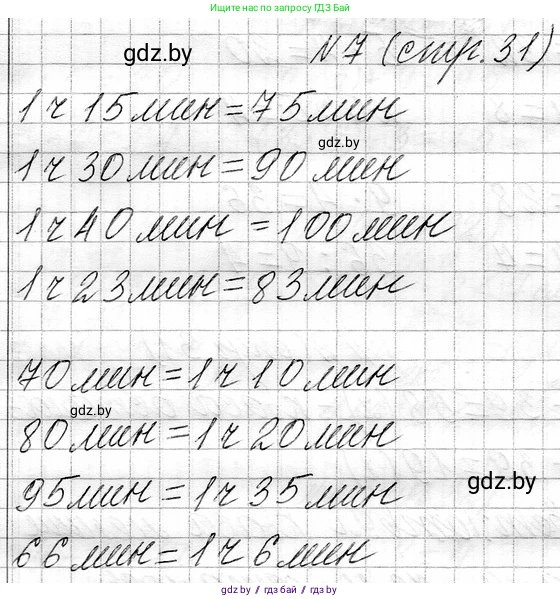 Ищите нас по запросу ГДЗ Бай
gdz.by
№7 (стр. 31)
1ч 15 мин = 75 мин
gdz.by
1ч 30 мин = 90 мин
1ч 40 мин = 100 мин
1ч 23 мин = 83 мин
70 мин = 1ч 10 мин
gdz.by
80 мин = 1ч 20 мин
gdz.by
95 мин = 1ч 35 мин
66 мин = 1ч 6 мин
gdz.by / гдз бай / gdz.by